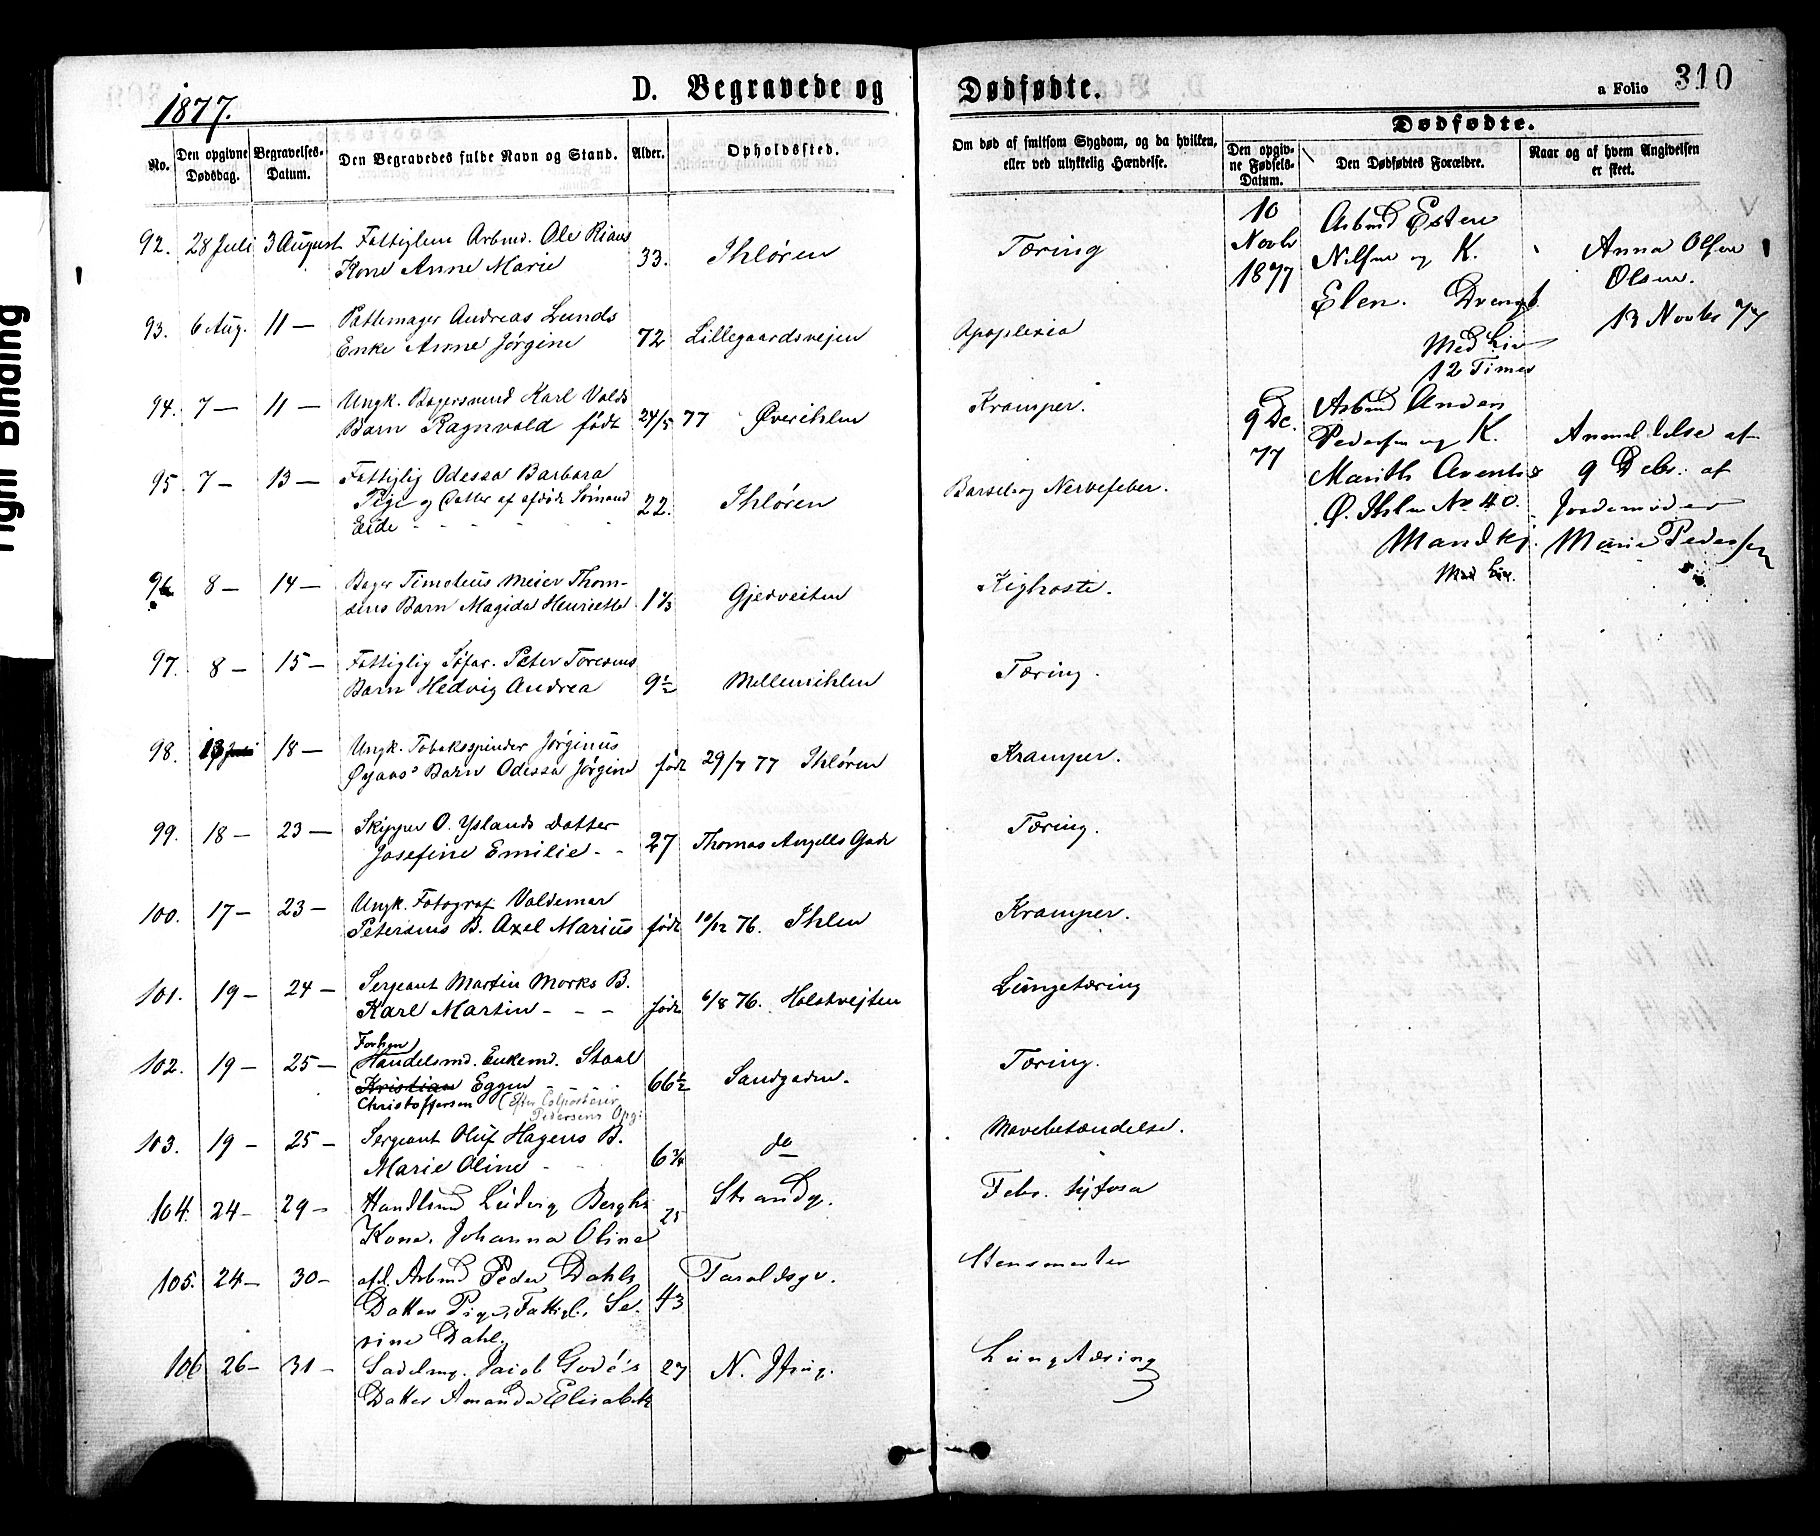 1877.
D. Begravede og
Dødfødte.
a Folio 310
No.
Den opgivne Dødsdag.
Begravelses-Datum.
Den Begravedes fulde Navn og Stand.
Alder.
Opholdssted.
Om død af smitsom Sygdom, og da hvilken,
eller ved ulykkelig Hændelse.
Dødfødte.
Den opgiv-
ne Fødsels-
Datum.
Den Dødfødtes Forældre.
Naar og af hvem Angivelsen
er skeet.
92. 28 Juli 3 August Fattiglem Arbmd. Ole Riaas
Kone Anne Marie 33. Ihløren Tæring
93. 6 Aug. 11 — Pottemager Andreas Lunds
Enke Anne Jørgine 72 Lillegaardsvejen Apoplexia
94. 7 — 11 — Ungk. Bagersvend Karl Volds
Barn Ragnvald født 24/5 77 Øverihlen Kramper.
95 7 — 13 — Fattiglig Odessa Barbara
Pige og Datter af afdøde Sømand
Eide 22. Ihløren Barsel og Nervefeber.
96 8 — 14 — Bager Timoteus Meier Thom-
sens Barn Magida Henriette 1 1/3 Gjedveiten Kighoste.
97. 8 — 15 — Fattiglig Søfar. Peter Toresens
Barn Hedvig Andrea 9 1/2 Mellemihlen Tæring.
98. 18 — Ungk. Tobaksspinder Jørginus
Øyaas' Barn Odessa Jørgine født 29/7 77 Ihløren Kramper.
99. 18 — 23 — Skipper O. Yslands Datter
Josefine Emilie - - 27 Thomas Angells Gade Tæring.
100. 17 — 23 — Ungk. Fotograf Valdemar
Petersens B. Axel Marius født 10/12 76. Ihlen Kramper.
101. 19 — 24 — Sergeant Martin Morks B.
Karl Martin - - - født 6/8 76. Holstvejten Lungetæring
102. 19 — 25 — Forhen
Handelsmd. Enkemd. Staal
Kristian Eggen - - - 66 1/2 Sandgaden. Tæring.
Christoffersen (Efter Colportører
Pedersens Opg:
103. 19 — 25 — Sergeant Oluf Hagens B.
Marie Oline - 6 3/4 do Mavebetændelse.
104. 24 — 29 — Handlsmd Ludvig Berghs
Kone, Johanna Olina 25 Strandg. Febr. tyfosa
105. 24 — 30 — afd. Arbmd Peder Dahls
Datter Pige, Fattigl. Se-
rine Dahl 43 Taraldsgv. Stensmerter
106 26 — 31 — Sadelmg. Jacob Godé's
Datter Amanda Elisabeth 27 N. Lungetæring
10
Novbr
1877
Arbmd Esten
Nilsen og K.
Elen. Drengb.
Med Liv
12 Timer
Anna Olsen
Olsen.
13 Novbr 77
9 De.
77
Arbmd Anders
Pedersen og K.
Marith Arents
Ø. Ihlen No 40.
Mandkj.
Med Liv.
Anmeldelse af
9 Debr. af
Jordemoder
Marie Pedersen
Tight Binding